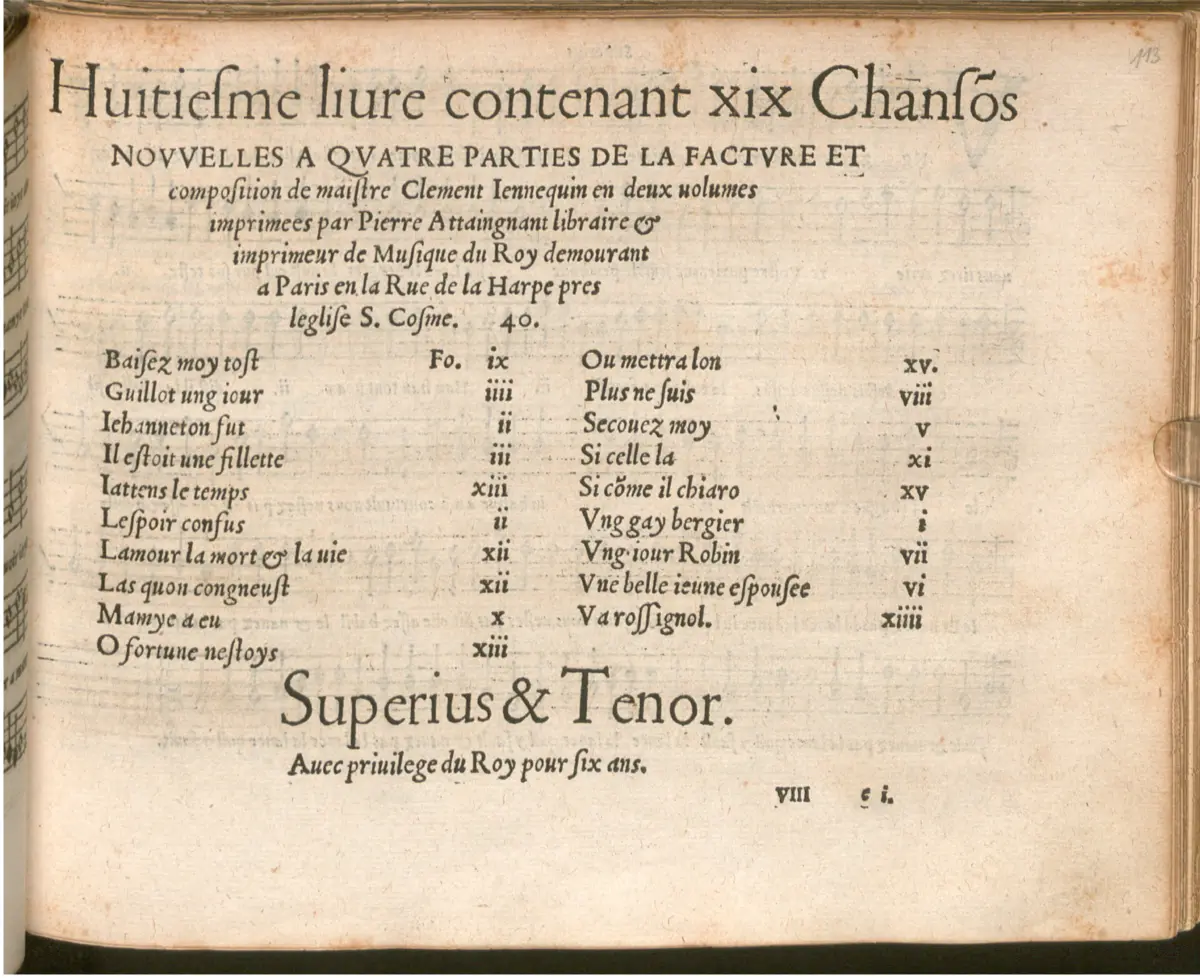 113
Huitiesme liure contenant xix Chansõs
NOVVELLES A QVATRE PARTIES DE LA FACTVRE ET
composition de maistre Clement Iennequin en deux uolumes
imprimees par Pierre Attaingnant libraire &
imprimeur de Musique du Roy demourant
a Paris en la Rue de la Harpe pres
leglise S. Cosme. 40.
Baisez moy tost Fo. ix
Guillot ung iour iiii
Iehanneton fut ii
Il estoit une fillette iii
Iattens le temps xiii
Lespoir confus ii
Lamour la mort & la uie xii
Las quon congneust xii
Mamye a eu x
O fortune nestoys xiii
Ou mettra lon xv.
Plus ne suis viii
Secouez moy v
Si celle la xi
Si cõme il chiaro xv
Vng gay bergier i
Vng iour Robin vii
Vne belle ieune espousee vi
Va rossignol. xiiii
Superius & Tenor.
Auec priuilege du Roy pour six ans.
VIII e i.